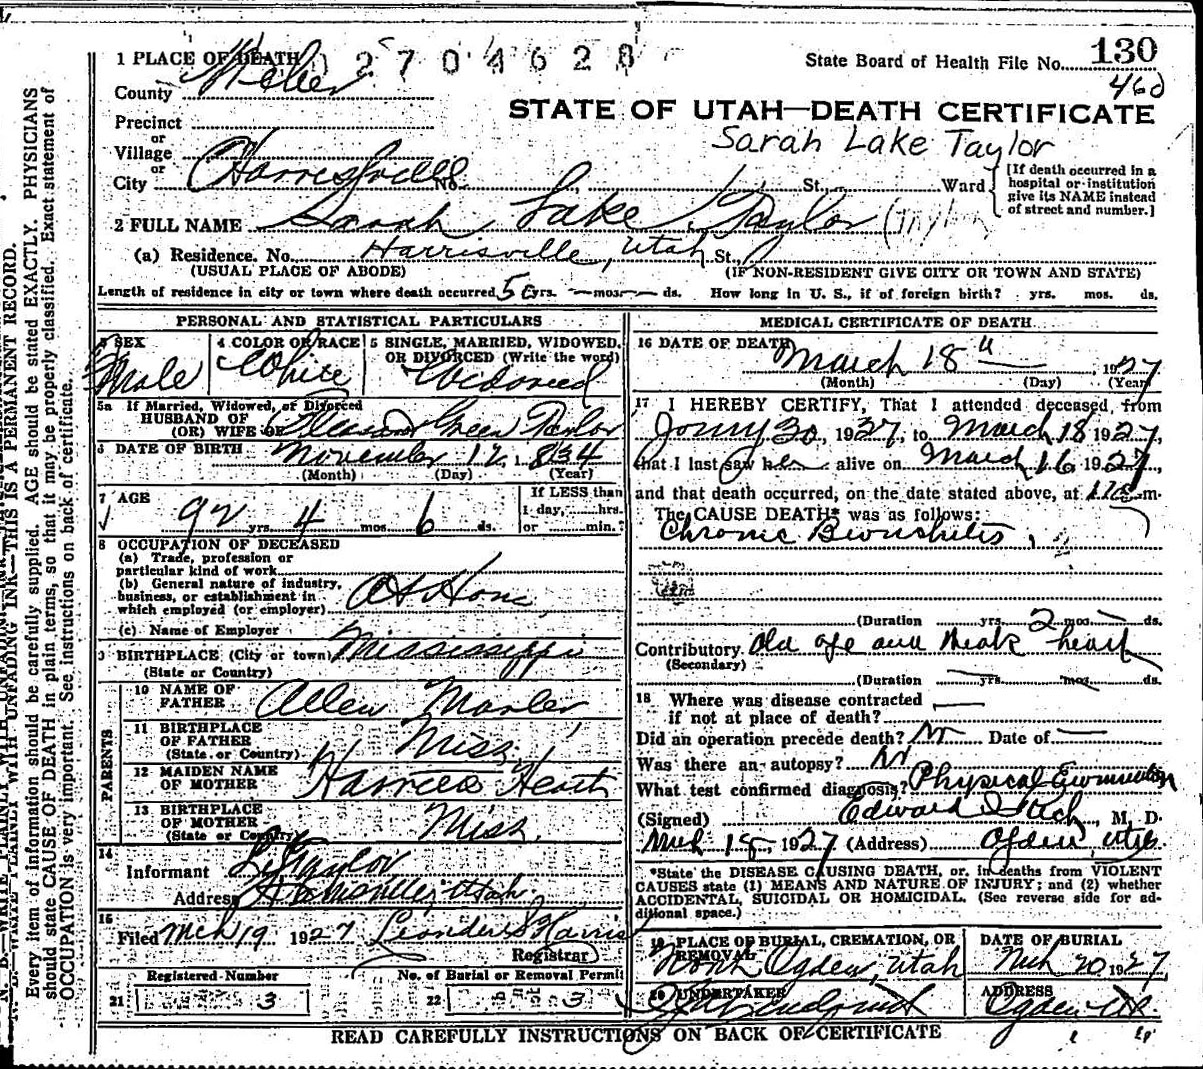 1 PLACE OF DEATH 2704628 State Board of Health File No. 130
460
County Weber
STATE OF UTAH—DEATH CERTIFICATE
Precinct
or
Village
or
City Harrisville No. St., Ward
Sarah Lake Taylor
[If death occurred in a hospital or institution give its NAME instead of street and number.]
2 FULL NAME Sarah Lake Taylor (Taylor)
(a) Residence. No. Harrisville, Utah St.,
(USUAL PLACE OF ABODE) (IF NON-RESIDENT GIVE CITY OR TOWN AND STATE)
Length of residence in city or town where death occurred yrs. — mos. — ds. How long in U. S., if of foreign birth? yrs. mos. ds.
PERSONAL AND STATISTICAL PARTICULARS
3 SEX 4 COLOR OR RACE 5 SINGLE, MARRIED, WIDOWED, OR DIVORCED (Write the word)
Male White Widowed
5a If Married, Widowed, or Divorced
HUSBAND OF
(OR) WIFE OF Pleasant Green Taylor
6 DATE OF BIRTH November 12, 1834
(Month) (Day) (Year)
7 AGE If LESS than
1 day, hrs.
92 yrs. 4 mos. 6 ds. or min.?
8 OCCUPATION OF DECEASED
(a) Trade, profession or
particular kind of work
(b) General nature of industry,
business, or establishment in
which employed (or employer) At Home
(c) Name of Employer
9 BIRTHPLACE (City or town) Mississippi
(State or Country)
PARENTS
10 NAME OF
FATHER Allen Marler
11 BIRTHPLACE
OF FATHER Miss.
(State or Country)
12 MAIDEN NAME
OF MOTHER
13 BIRTHPLACE
OF MOTHER Miss.
(State or Country)
14
Informant Taylor
Address Harrisville, Utah.
15
Filed Mch 19 1927 Harris
Registrar
Registered Number No. of Burial or Removal Permit
21 3 22 3
MEDICAL CERTIFICATE OF DEATH
16 DATE OF DEATH March 18, 1927
(Month) (Day) (Year)
17 I HEREBY CERTIFY, That I attended deceased from
30, 1927, to March 18 1927,
that I last saw her alive on March 16 1927,
and that death occurred, on the date stated above, at m.
The CAUSE DEATH* was as follows:
Chronic Bronchitis,
(Duration yrs. 2 mos. — ds.
Contributory Old age and Weak heart
(Secondary)
(Duration yrs. mos. ds.
18 Where was disease contracted
if not at place of death? —
Did an operation precede death? No Date of —
Was there an autopsy? No
What test confirmed diagnosis? Physical Examination
(Signed) Edward M. D.
Mch 18, 1927 (Address) Ogden, Utah.
*State the DISEASE CAUSING DEATH, or, in deaths from VIOLENT
CAUSES state (1) MEANS AND NATURE OF INJURY; and (2) whether
ACCIDENTAL, SUICIDAL OR HOMICIDAL. (See reverse side for ad-
ditional space.)
19 PLACE OF BURIAL, CREMATION, OR REMOVAL DATE OF BURIAL
North Ogden, Utah Mch 20 1927
20 UNDERTAKER ADDRESS
Ogden Ut.
READ CAREFULLY INSTRUCTIONS ON BACK OF CERTIFICATE
THIS IS A PERMANENT RECORD.
Every item of information should be carefully supplied. AGE should be stated EXACTLY. PHYSICIANS
should state CAUSE OF DEATH in plain terms, so that it may be properly classified. Exact statement of
OCCUPATION is very important. See instructions on back of certificate.